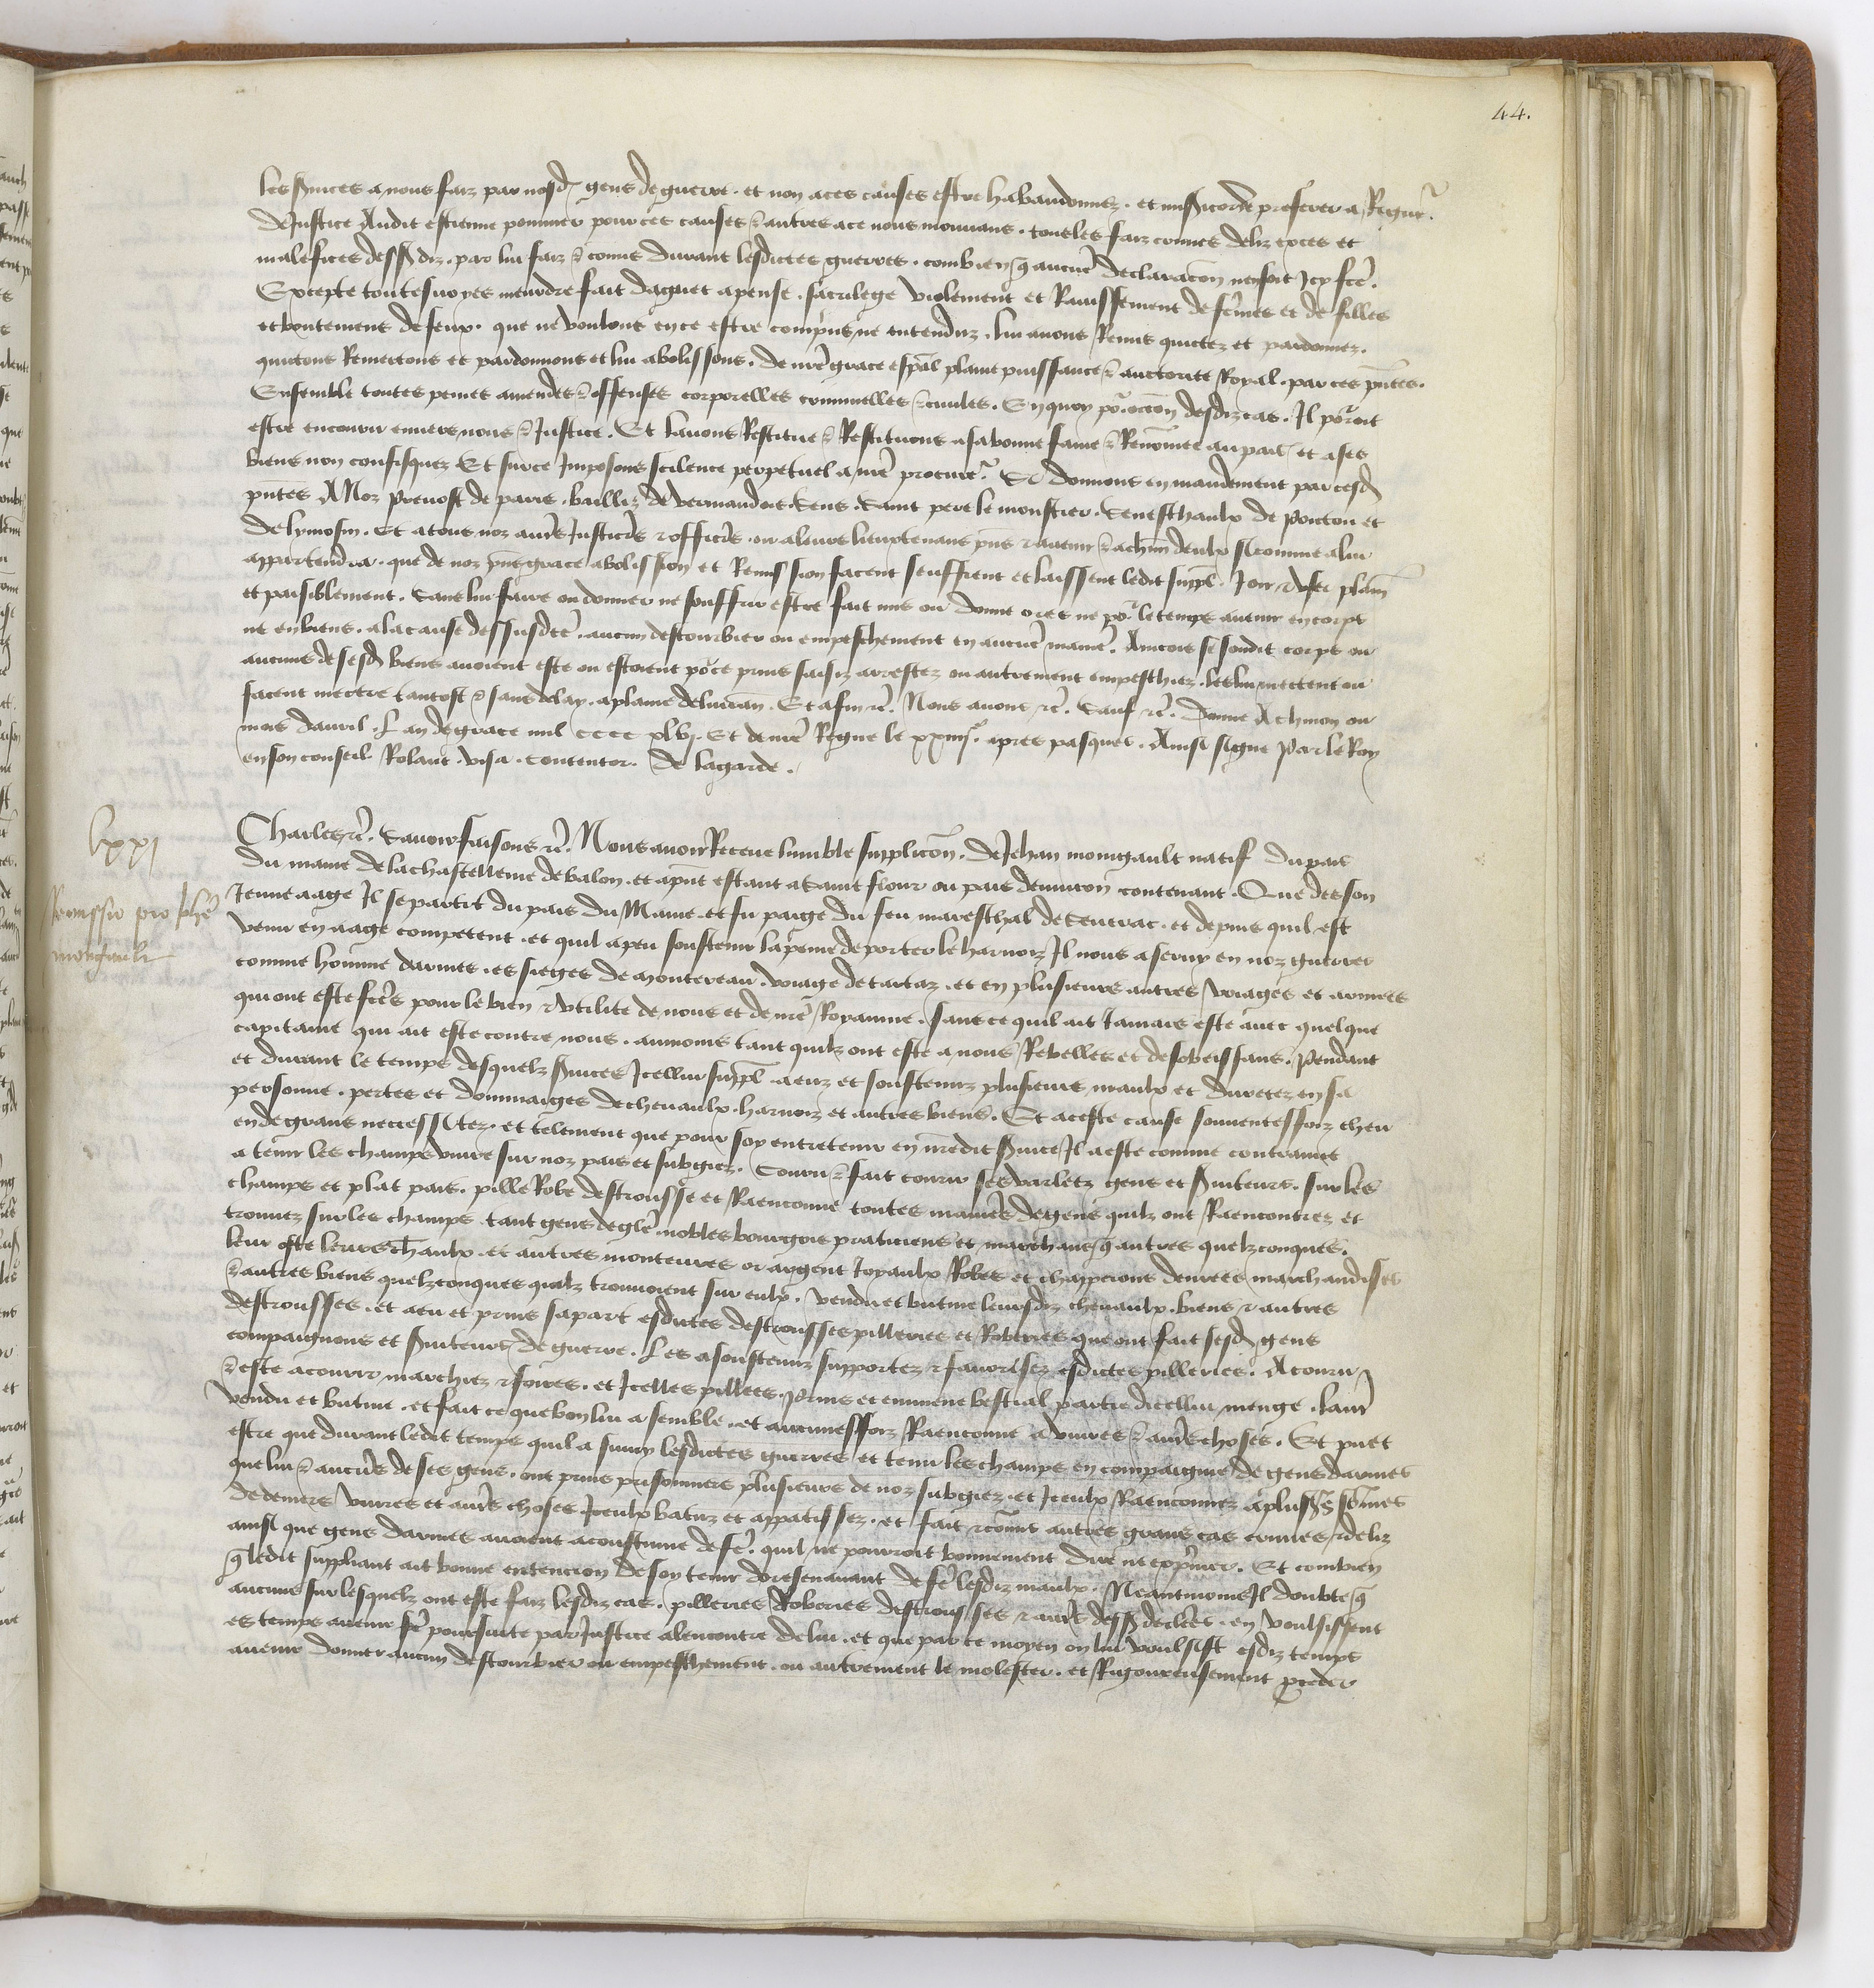 44.
les s͂uices a nous faiz par nosd gens de guerre . et non a ces causes estre habandonnez . et mis͂icorde preferer a Rigueur
de Justice Audit estienne pommier pour ces causes & autres a ce nous mouvans . tous les faiz crimes deliz exces et
malefices dess͂ diz . par lui faiz & commis durant lesdictes guerres . combien q̄ aucune declaracōn nen soit Icy fcē .
Excepte toutesuoyes meurdre fait daguet apense . sacrilege violement et Rauissement de fēmes et de filles
et boutement de feux . que ne voulons en ce estre comprins ne entenduz . lui auons Remis quictez et pardonnez .
quictons Remectons et pardonnons et lui abolissons . de nrē grace espāl plaine puissance & auctorite Royal . par ces pn̄tes .
Ensemble toutes peines amendes & offenses corporelles criminelles & ciuiles . En quoy po᷑ occōn desdiz cas . Il po᷑roit
estre encouru enuers nous & Justice . Et lauons Restitue & Restituons a sa bonne fame & Renōmee au pais et a ses
biens non confisquez Et sur ce Imposons scilence perpetuel a nrē procure᷑ . Et donnons en mandement par cesd
pn̄tes Aux preuost de paris . bailliz de vermandois . Sens . Saint pere le moustier . Seneschaulx de poictou et
de lymosin . Et a tous noz autrēs Justiciers & officiers . ou a leurs lieuxtenans pn̄s & auenir & a chūn deulx si comme a lui
appartendra . que de noz pn̄s grace abolission et Remission facent seuffrent et laissent ledit suppl̄ . Joir & vser plain̄
et paisiblement . Sans lui faire ou donner ne souffrir estre fait mis ou donne ores ne po᷑ le temps auenir en corps
ne en biens . a la cause dessusdcē . aucun destourbier ou empeschement en aucunē manie᷑ . Aincois se sondit corps ou
aucuns de sesd biens auoient este ou estoient po᷑ce prins saisiz arrestez ou autrement empeschiez . les lui mectent ou
facent mectre tantost & sans delay . a plaine deliurān . Et afin &c̄ . Nous auons &c̄ . Sauf &c̄ . Donne A chinon ou
mois dauril . Lan de grace mil cccc xlvj . Et de nrē Regne le xxiiij᷑ . apres pasques . Ainsi signe Par le Roy
en son conseil . Rolant . visa . contentor . de lagarde .
lxxj
Remissio pro Joh̄e
mongault
Charles &c̄ . Sauoir faisons &c̄ . Nous auoir Receue lumble supplicōn . de Jehan mongault natif du pais
du maine de la chastellenie de balon . et apn̄t estant a Saint flour ou pais denuiron contenant . Que des son
Jeune aage Il se partit du pais du Maine . et fu paige du feu mareschal de Seurac . et depuis quil est
venu en aage competent . et quil a peu soustenir la peine de porter le harnoiz Il nous a seruy en noz guerres
comme homme darmes . es sieges de montereau . voiage de tartaz . et en plusieurs autres voiages et armees
qui ont este fcēs pour le bien & vtilite de nous et de nrē Royaume . sans ce quil ait Jamais este auec quelque
capitaine qui ait este contre nous . aumoins tant quilz ont este a nous Rebelles et desobeissans . Pendant
et durant le temps desquelz s͂uices Icellui suppl̄ . a euz et soustenuz plusieurs maulx et duretez en sa
personne . pertes et dommaiges de cheuaulx . harnoiz et autres biens . Et a ceste cause souuentesfoiz cheu
en de grans necessitez . et telement que pour soy entretenir en nr̄edit s͂uice Il a este comme contraint
a tenir les champs viure sur noz pais et subgiez . Couru & fait courir ses varletz gens et s͂uiteurs . sur les
champs et plat pais . pille Robe destrousse et Raenconne toutes manieres de gens quilz ont Raencontrez et
trouuez sur les champs . tant gens deglē nobles bourgois praticiens et marchans q̄ autres quelzconques .
leur oste leurs ch̄aulx . et autres monteures or argent Joyaulx Robes et chapperons denrees marchandises
& autres biens quelzconques quilz trouuoient sur eulx . vendu et butine leursdiz cheuaulx . biens & autres
destrousses . et a eu et prins sa part esdictes destrousses pilleries et Roberies que ont fait sesd gens
compaignons et s͂uiteurs de guerre . Les a soustenuz supportez & fauorisez esdictes pilleries . A couru
& este a courir marchiez & foires . et Icelles pillees . prins et emmene bestial partie dicellui menge . lautr̄
vendu et butine . et fait ce que bon lui a semble . et aucunesfoiz Raenconne a viures & autrēs choses . Et puet
estre que durant ledit temps quil a suiuy lesdictes guerres et tenu les champs en compaignie de gens darmes
que lui & aucuns de ses gens . ont prins prisonniers plusieurs de noz subgiez . et Iceulx Raenconnez a plusrs sōmes
de deniers viures et autrēs choses Iceulx batuz et appatissez . et fait & cōmis autres grans cas crimes & deliz
ainsi que gens darmes auoient acoustume de fcē . quil ne pourroit bonnement dire ne exprimer . Et combien
q̄ ledit suppliant ait bonne entencion de soy tenir doresenauant de fcē lesdiz maulx . Neantmoins Il doubte q̄
aucuns sur lesquelz ont este faiz lesdiz cas . pilleries Roberies destrousses & autrēs dess͂ declerēs . en voulsissent
es temps auenir fcē poursuite par Justice alencontre de lui . et que par ce moyen on lui voulsist esdiz temps
auenir donner aucun destourbier ou empeschement . ou autrement le molester . et Rigoureusement proceder